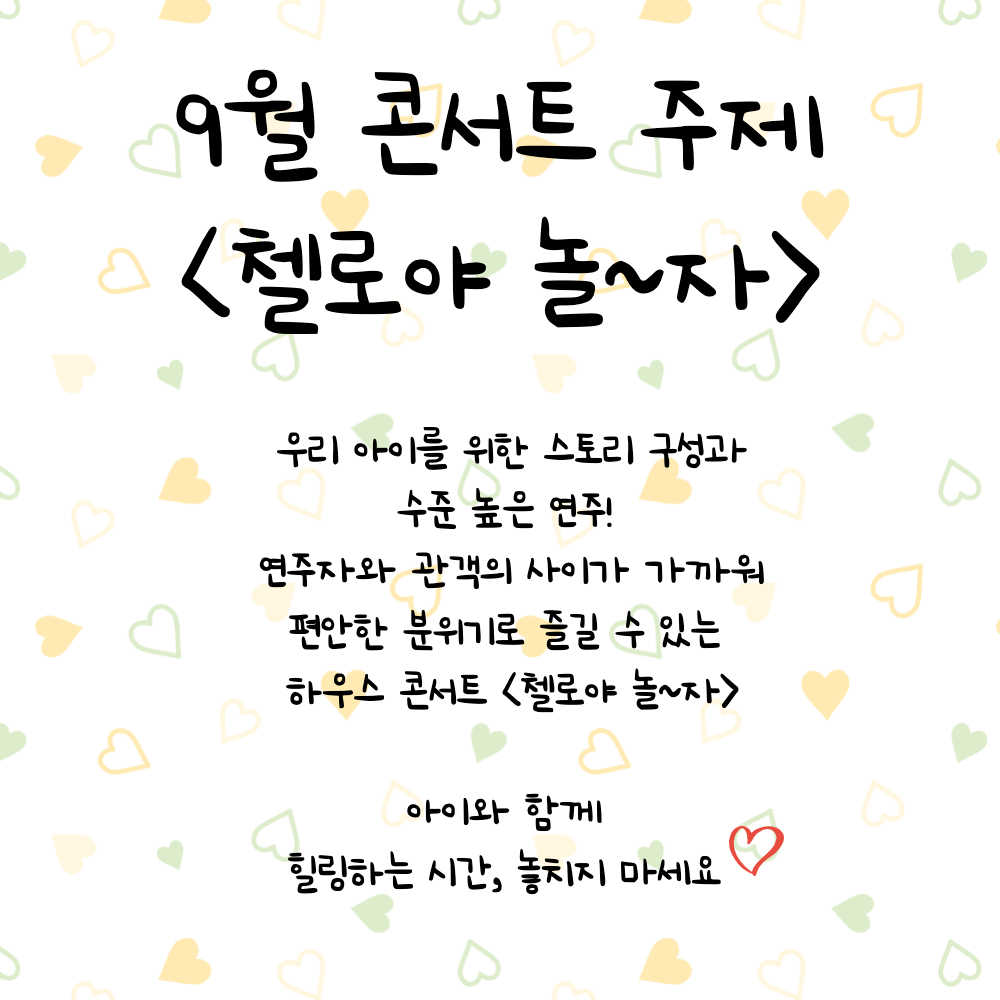 9월 콘서트 주제
<첼로야 놀~자>
우리 아이를 위한 스토리 구성과
수준 높은 연주!
연주자와 관객의 사이가 가까워
편안한 분위기로 즐길 수 있는
하우스 콘서트 <첼로야 놀~자>
아이와 함께
힐링하는 시간, 놓치지 마세요